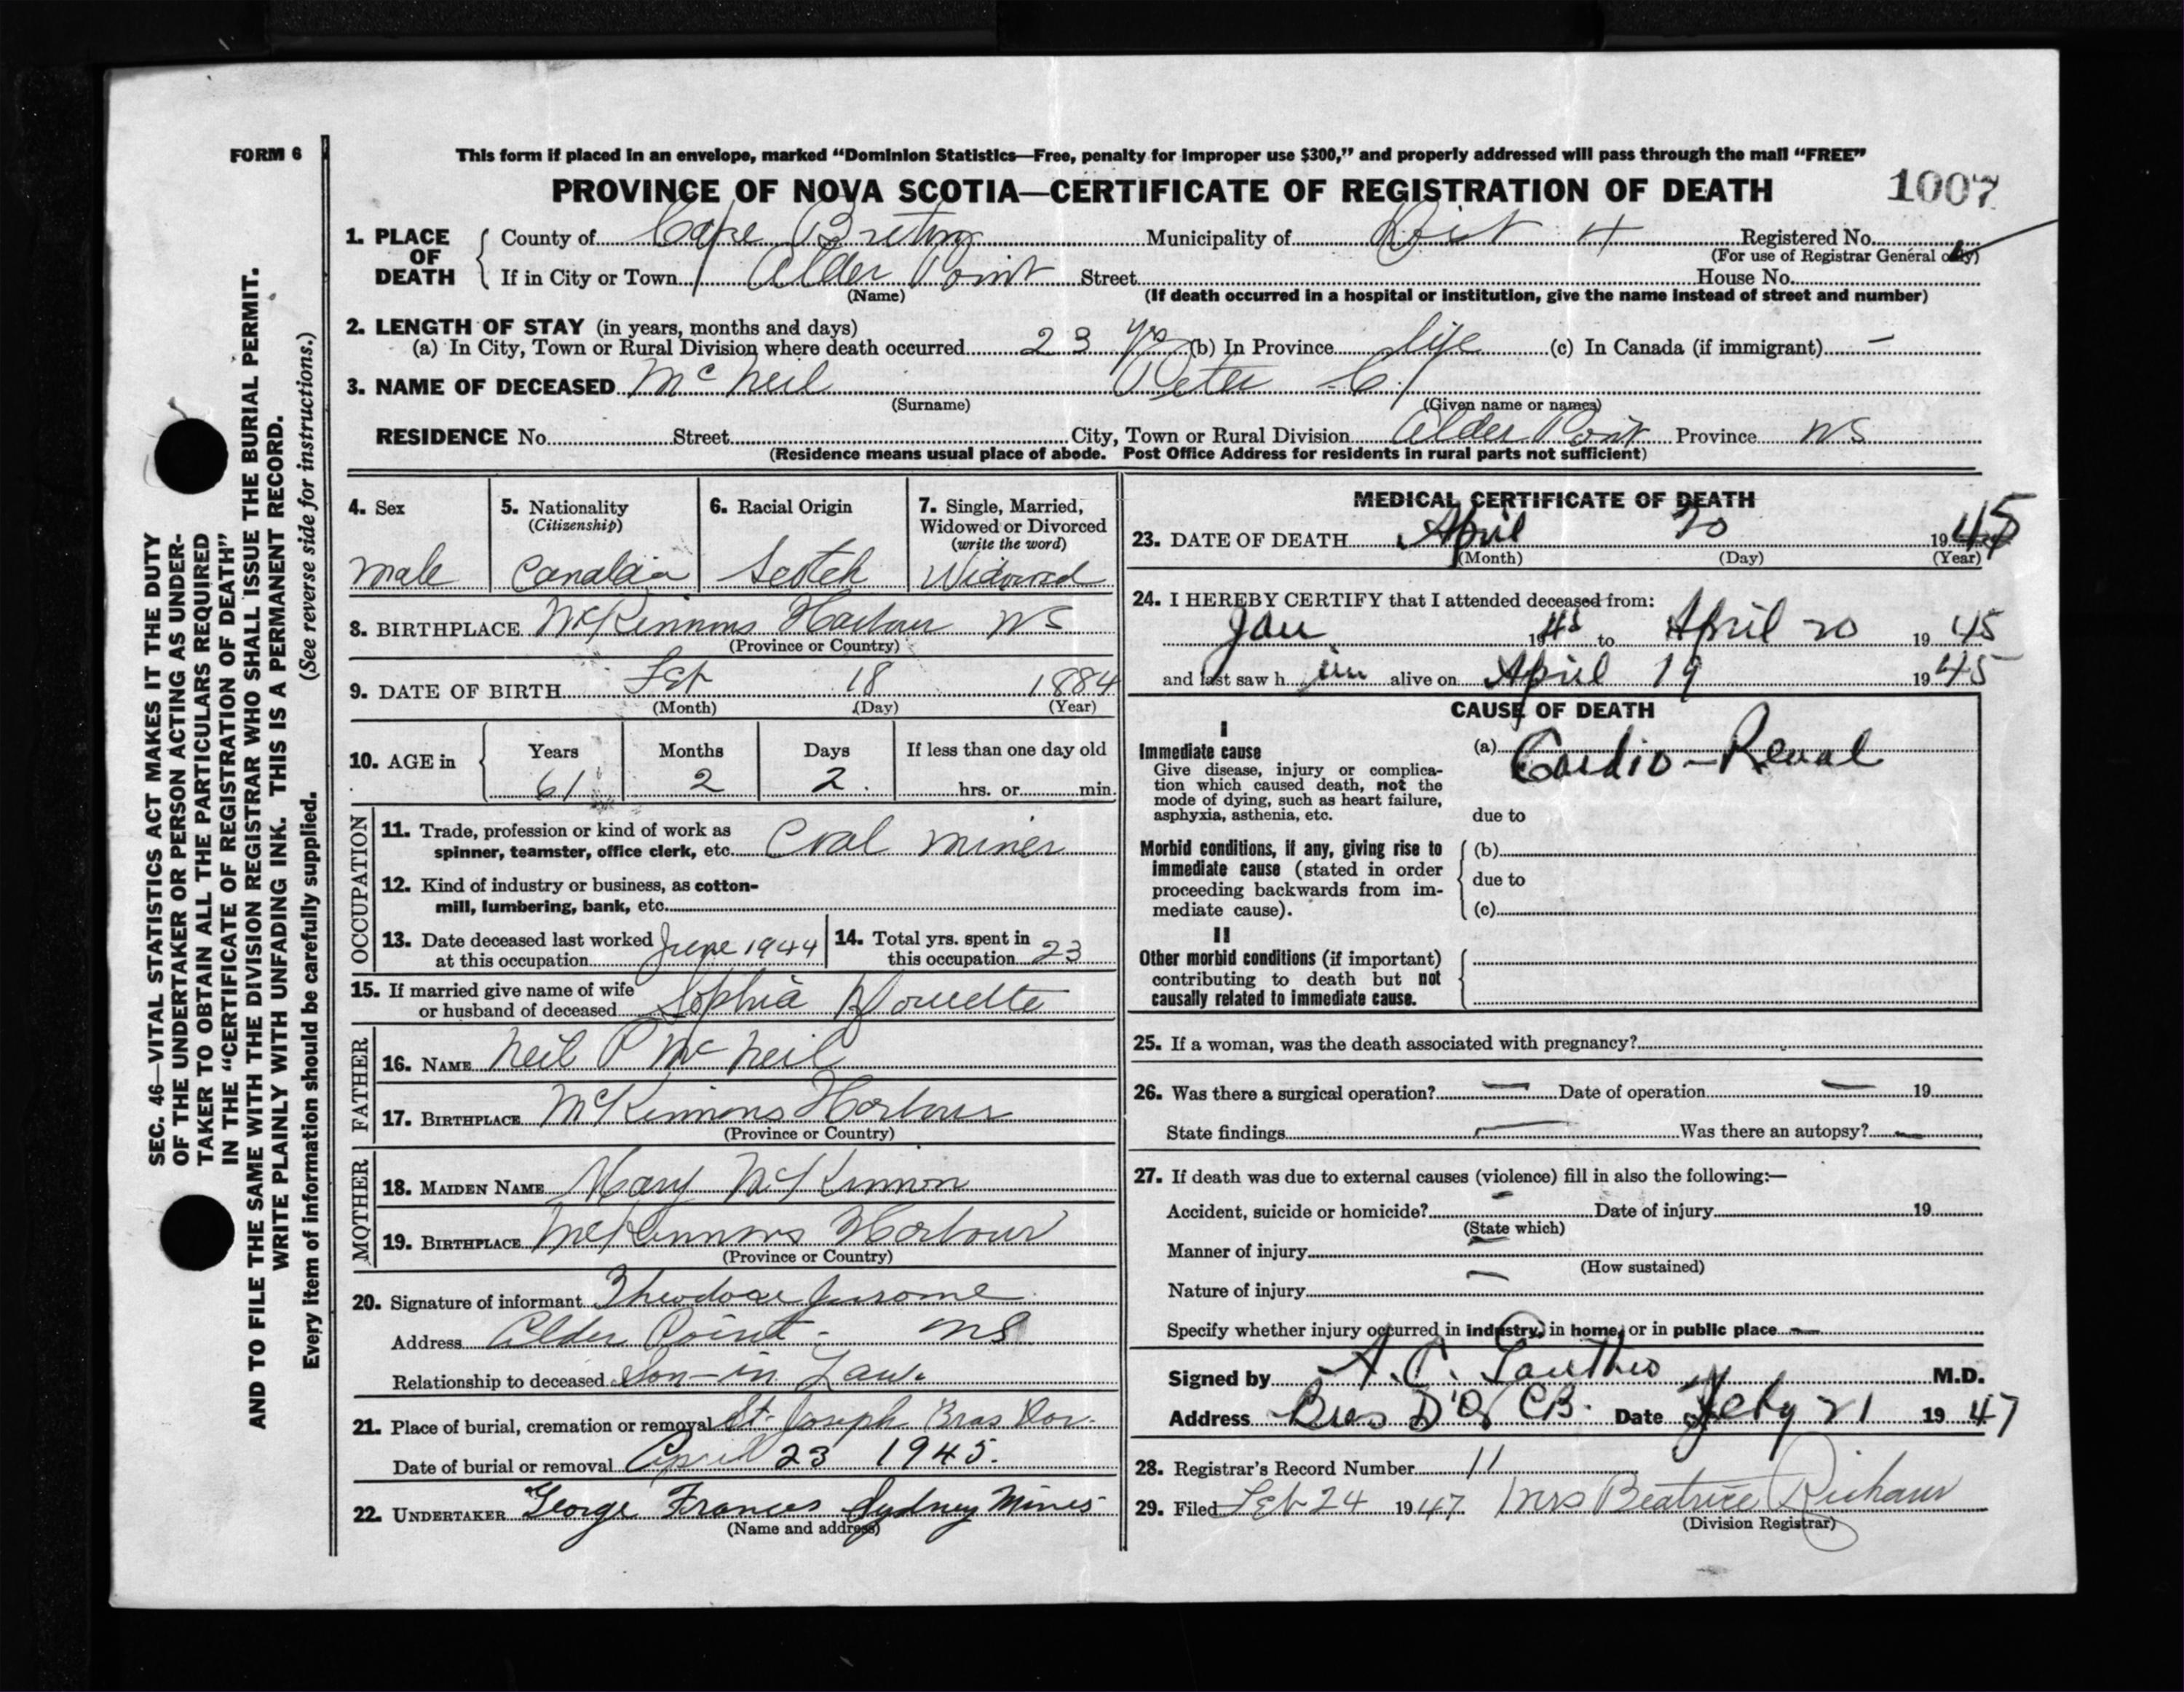 FORM 6
This form if placed in an envelope, marked “Dominion Statistics—Free, penalty for improper use $300,” and properly addressed will pass through the mail “FREE”
PROVINCE OF NOVA SCOTIA—CERTIFICATE OF REGISTRATION OF DEATH
1007
1. PLACE OF DEATH
County of Cape Breton Municipality of Dist 4 Registered No.
(For use of Registrar General only)
If in City or Town Alder Point Street House No.
(Name) (If death occurred in a hospital or institution, give the name instead of street and number)
2. LENGTH OF STAY (in years, months and days)
(a) In City, Town or Rural Division where death occurred 23 yrs (b) In Province life (c) In Canada (if immigrant) –
3. NAME OF DECEASED McNeil Peter C.
(Surname) (Given name or names)
RESIDENCE No. Street City, Town or Rural Division Alder Point Province NS
(Residence means usual place of abode. Post Office Address for residents in rural parts not sufficient)
4. Sex
male
5. Nationality
(Citizenship)
6. Racial Origin
Scotch
7. Single, Married,
Widowed or Divorced
(write the word)
Widowed
8. BIRTHPLACE McKinnons Harbour NS
(Province or Country)
9. DATE OF BIRTH Feb 18 1884
(Month) (Day) (Year)
10. AGE in Years Months Days If less than one day old
61 2 2 hrs. or min.
OCCUPATION
11. Trade, profession or kind of work as
spinner, teamster, office clerk, etc. Coal miner
12. Kind of industry or business, as cotton-
mill, lumbering, bank, etc.
13. Date deceased last worked
at this occupation June 1944
14. Total yrs. spent in
this occupation 23
15. If married give name of wife
or husband of deceased Sophia
FATHER
16. NAME Neil P McNeil
17. BIRTHPLACE McKinnons Harbour
(Province or Country)
MOTHER
18. MAIDEN NAME Mary McKinnon
19. BIRTHPLACE McKinnons Harbour
(Province or Country)
20. Signature of informant Theodore Jerome
Address Alder Point - NS
Relationship to deceased Son-in Law.
21. Place of burial, cremation or removal St. Joseph Bras Dor.
Date of burial or removal April 23 1945.
22. UNDERTAKER George Frances Sydney Mines
(Name and address)
MEDICAL CERTIFICATE OF DEATH
23. DATE OF DEATH April 20 1945
(Month) (Day) (Year)
24. I HEREBY CERTIFY that I attended deceased from:
Jan 1945 to April 20 1945
and last saw him alive on April 19 1945
CAUSE OF DEATH
I
Immediate cause
Give disease, injury or complica-
tion which caused death, not the
mode of dying, such as heart failure,
asphyxia, asthenia, etc.
(a) Cardio-Renal
due to
Morbid conditions, if any, giving rise to
immediate cause (stated in order
proceeding backwards from im-
mediate cause).
(b)
due to
(c)
II
Other morbid conditions (if important)
contributing to death but not
causally related to immediate cause.
25. If a woman, was the death associated with pregnancy?
26. Was there a surgical operation? — Date of operation — 19
State findings — Was there an autopsy? —
27. If death was due to external causes (violence) fill in also the following:—
Accident, suicide or homicide? – Date of injury 19
(State which)
Manner of injury –
(How sustained)
Nature of injury –
Specify whether injury occurred in industry, in home, or in public place —
Signed by A. C. M.D.
Address Bras D'Or CB. Date Feby 21 1947
28. Registrar's Record Number 11
29. Filed Feb 24 1947 Mrs Beatrice
(Division Registrar)
SEC. 46—VITAL STATISTICS ACT MAKES IT THE DUTY
OF THE UNDERTAKER OR PERSON ACTING AS UNDER-
TAKER TO OBTAIN ALL THE PARTICULARS REQUIRED
IN THE “CERTIFICATE OF REGISTRATION OF DEATH”
AND TO FILE THE SAME WITH THE DIVISION REGISTRAR WHO SHALL ISSUE THE BURIAL PERMIT.
WRITE PLAINLY WITH UNFADING INK. THIS IS A PERMANENT RECORD.
Every item of information should be carefully supplied. (See reverse side for instructions.)